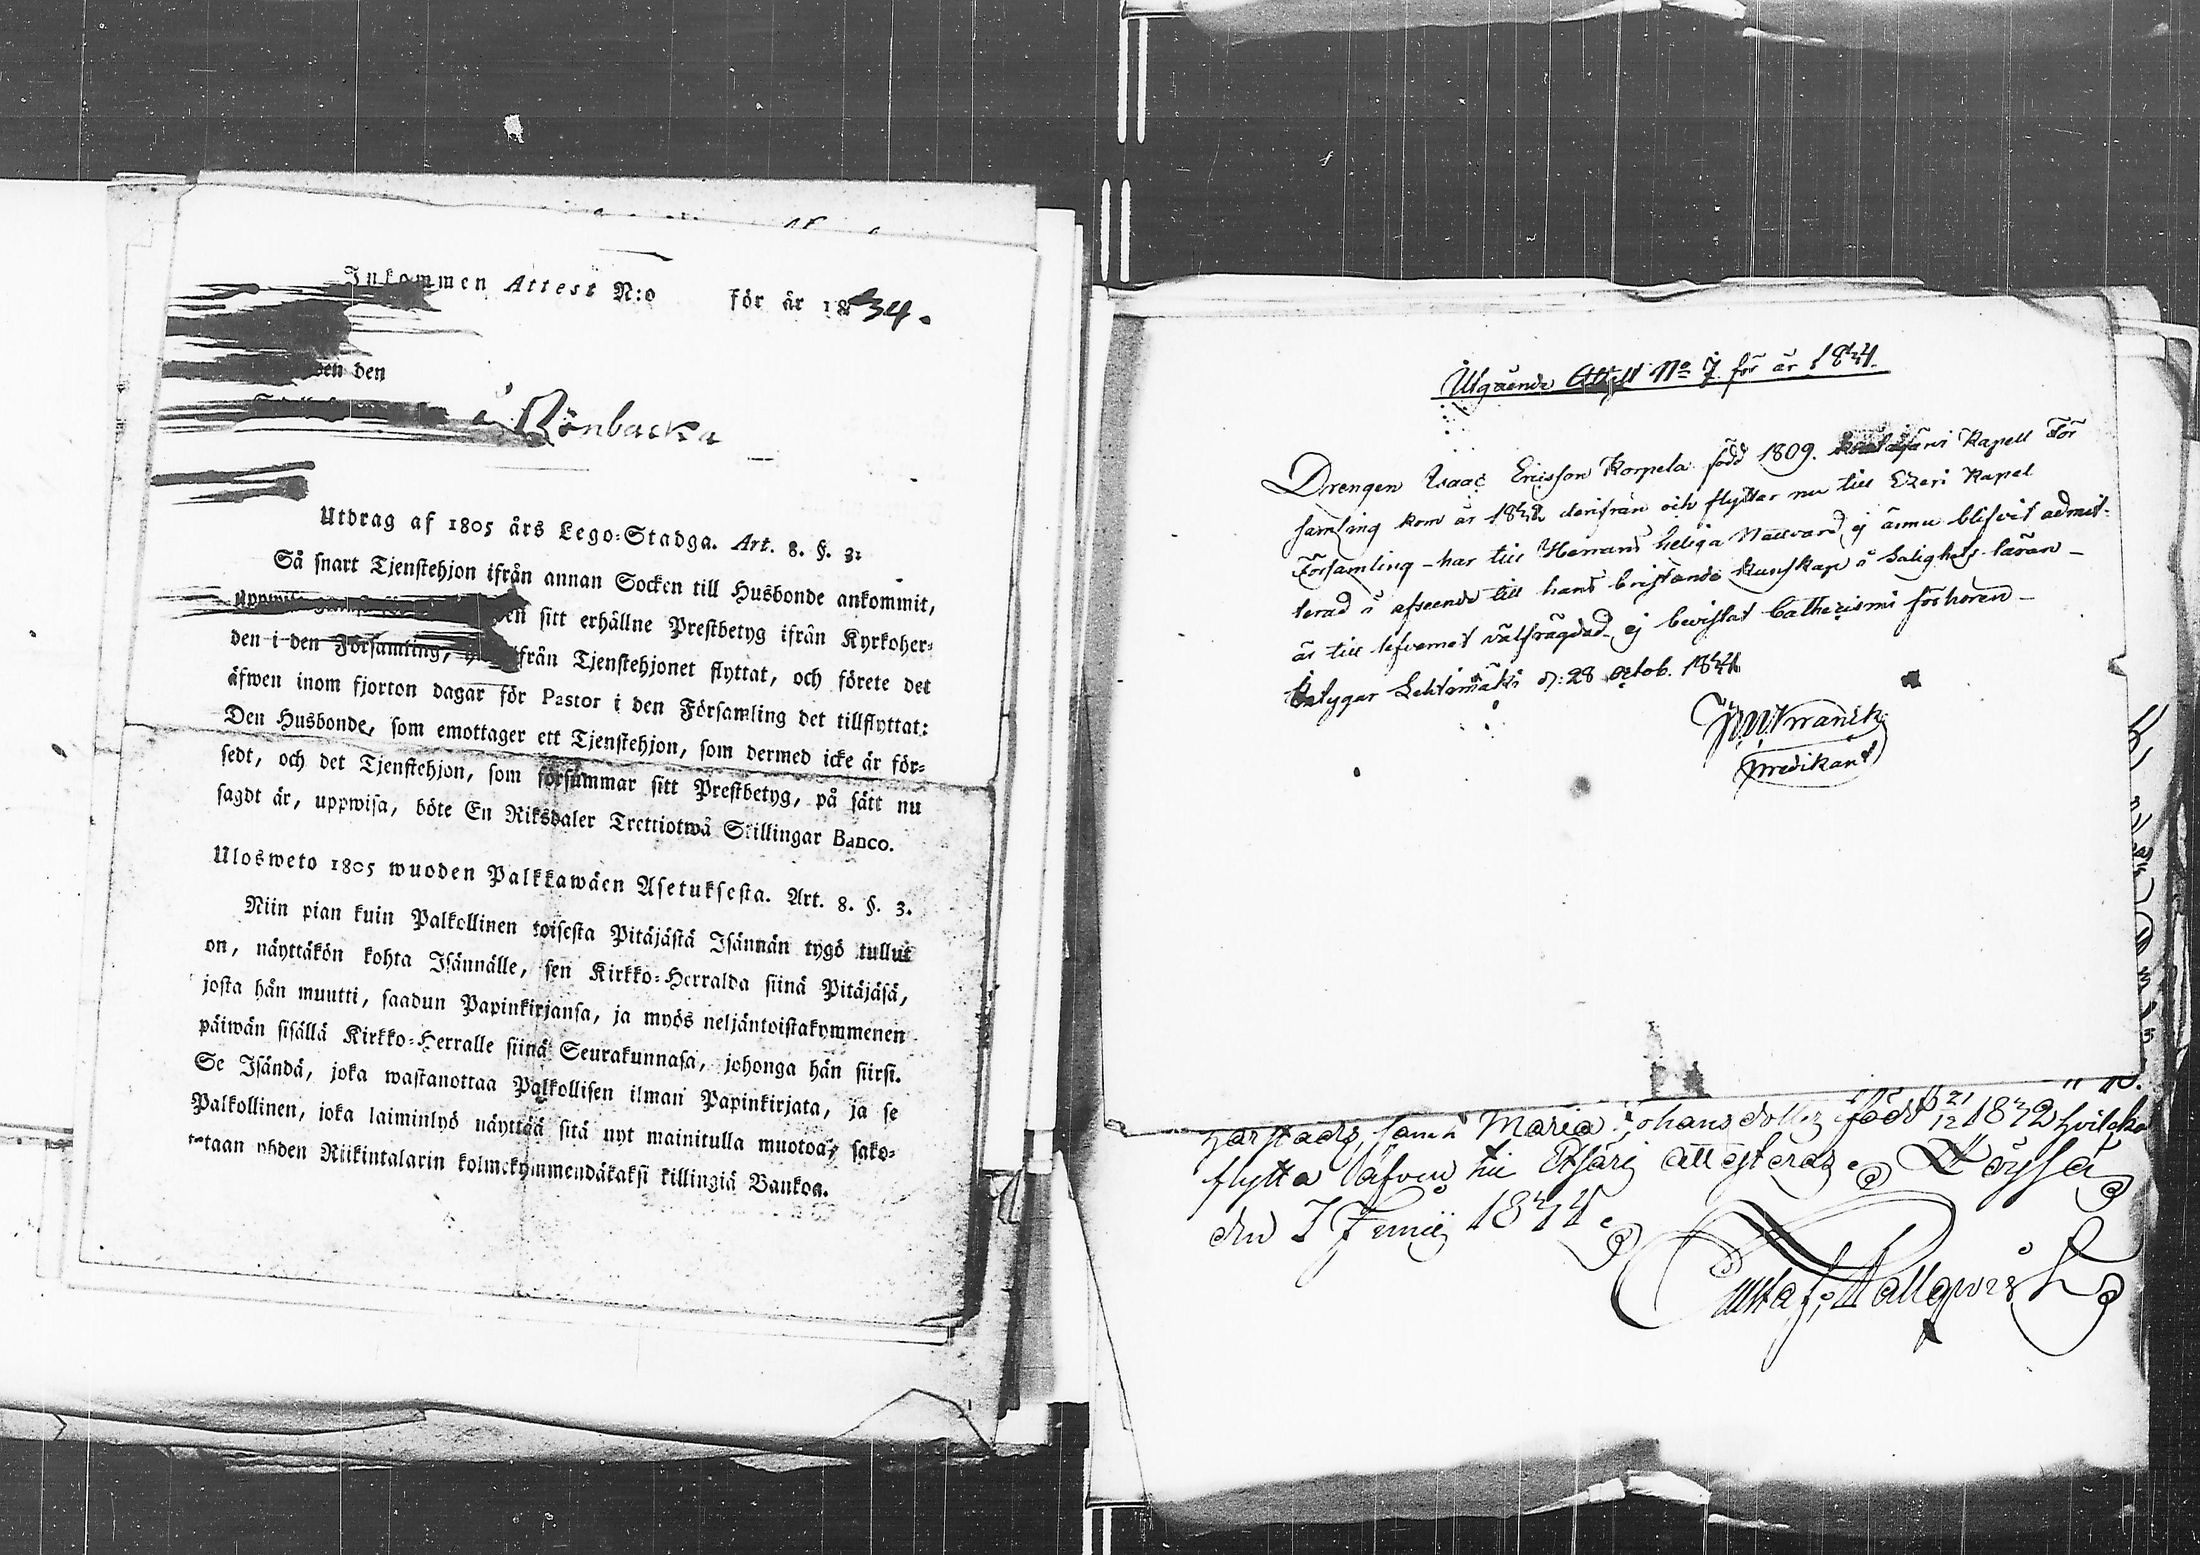 Inkommen Attest N:o för år 1834.
den
å Rönbacka
Utdrag af 1805 års Lego-Stadga. Art. 8. §. 3:
Så snart Tjenstehjon ifrån annan Socken till Husbonde ankommit,
sitt erhållne Prestbetyg ifrån Kyrkoher-
den i den Församling, ifrån Tjenstehjonet flyttat, och förete det
äfwen inom fjorton dagar för Pastor i den Församling det tillflyttat:
Den Husbonde, som emottager ett Tjenstehjon, som dermed icke är för-
sedt, och det Tjenstehjon, som försummar sitt Prestbetyg, på sätt nu
sagdt är, uppwisa, böte En Riksdaler Trettiotwå Skillingar Banco.
Ulosweto 1805 wuoden Palkkawäen Asetuksesta. Art. 8. §. 3.
Niin pian kuin Palkollinen toisesta Pitäjästä Isännän tygö tullut
on, näyttäkön kohta Isännälle, sen Kirkko-Herralda siinä Pitäjäsä,
josta hän muutti, saadun Papinkirjansa, ja myös neljäntoistakymmenen
päiwän sisällä Kirkko-Herralle siinä Seurakunnasa, johonga hän siirsi.
Se Isändä, joka wastanottaa Palkollisen ilman Papinkirjata, ja se
Palkollinen, joka laiminlyö näyttää sitä nyt mainitulla muotoa, sako-
tetaan yhden Riikintalarin kolmekymmendäkaksi killingiä Bankoa.
Utgående Attest No 7 för år 1834.
Drengen Isaac Ericsson Korpela född 1809. Kapell För
samling kom år 1832 derifrån och flyttar nu till Etzeri Kapel
Församling - har till Herrans heliga Nattvard ej ännu blifvit admit-
terad i afseende till hans bristande kunskap i Salighets läran -
är till lefvernet välfrägdad - ej bevistat Cathezismi förhören -
betygar Lehtimäki d: 28 octob. 1834
Predikant
samt Maria Johans dotter född 21/12 1832 hvilcka
flytta äfven till Etsäri attesterar. Töysä
den 1 Junii 1834.
Gustaf Hallqvist